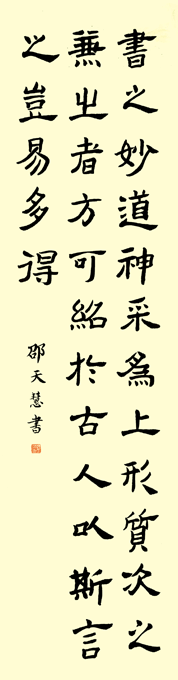 書之妙道神采為上形質次之
兼之者方可紹於古人以斯言
之豈易多得
邵天慧書